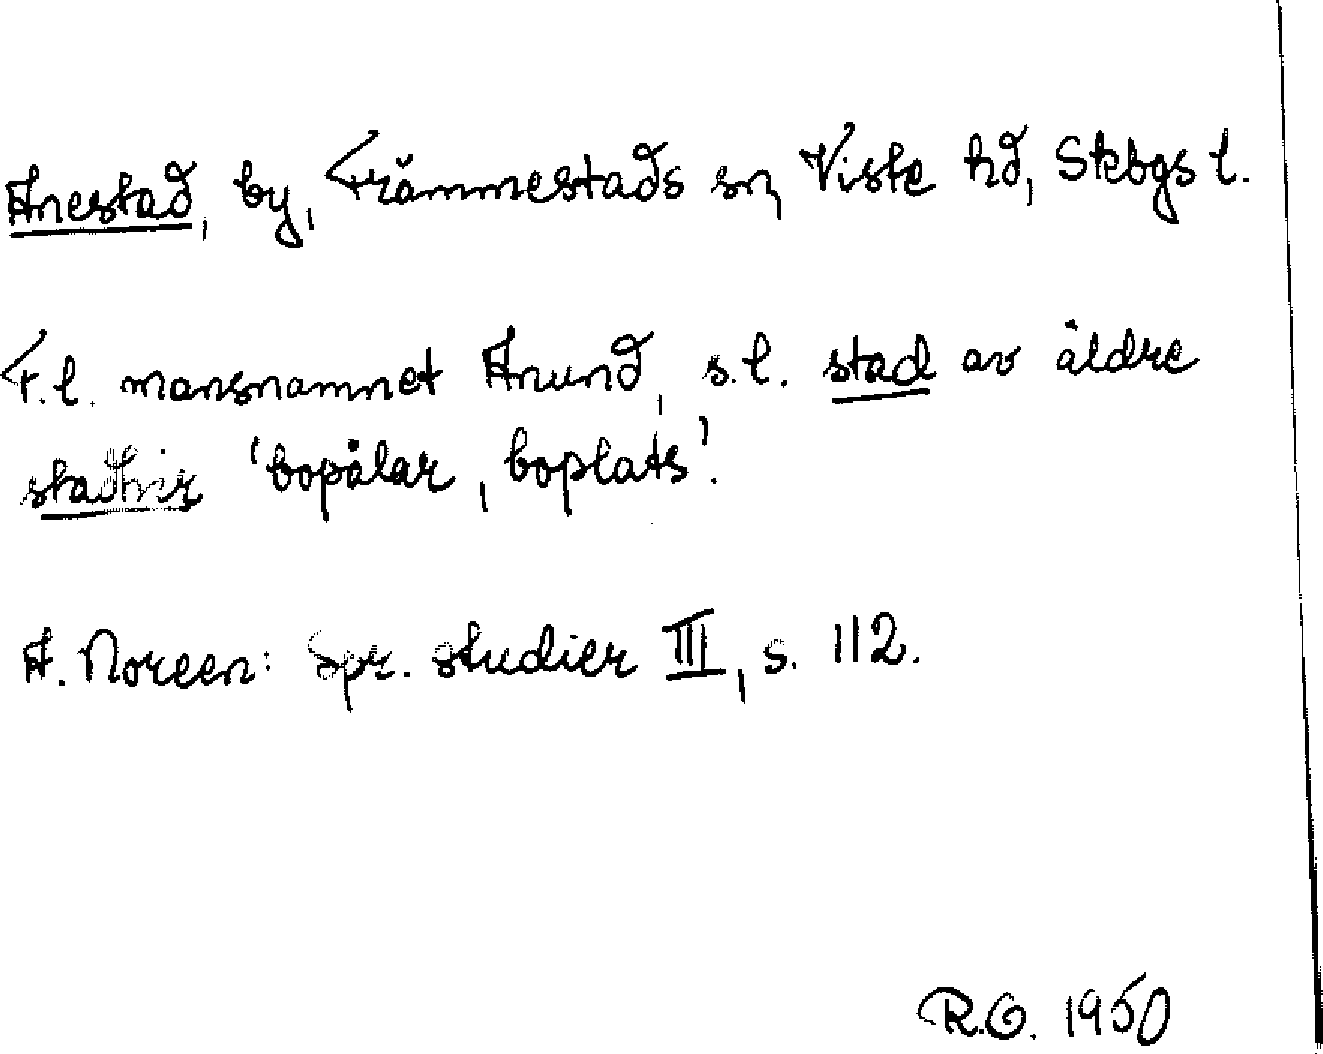 Anestad, by, Främmestads sn, Viste hd, Skbgs l.
F.l. mansnamnet Anund, s.l. stad av äldre
stadhir 'bopålar, boplats'.
A. Noreen: Spr. studier III, s. 112.
R.O. 1950